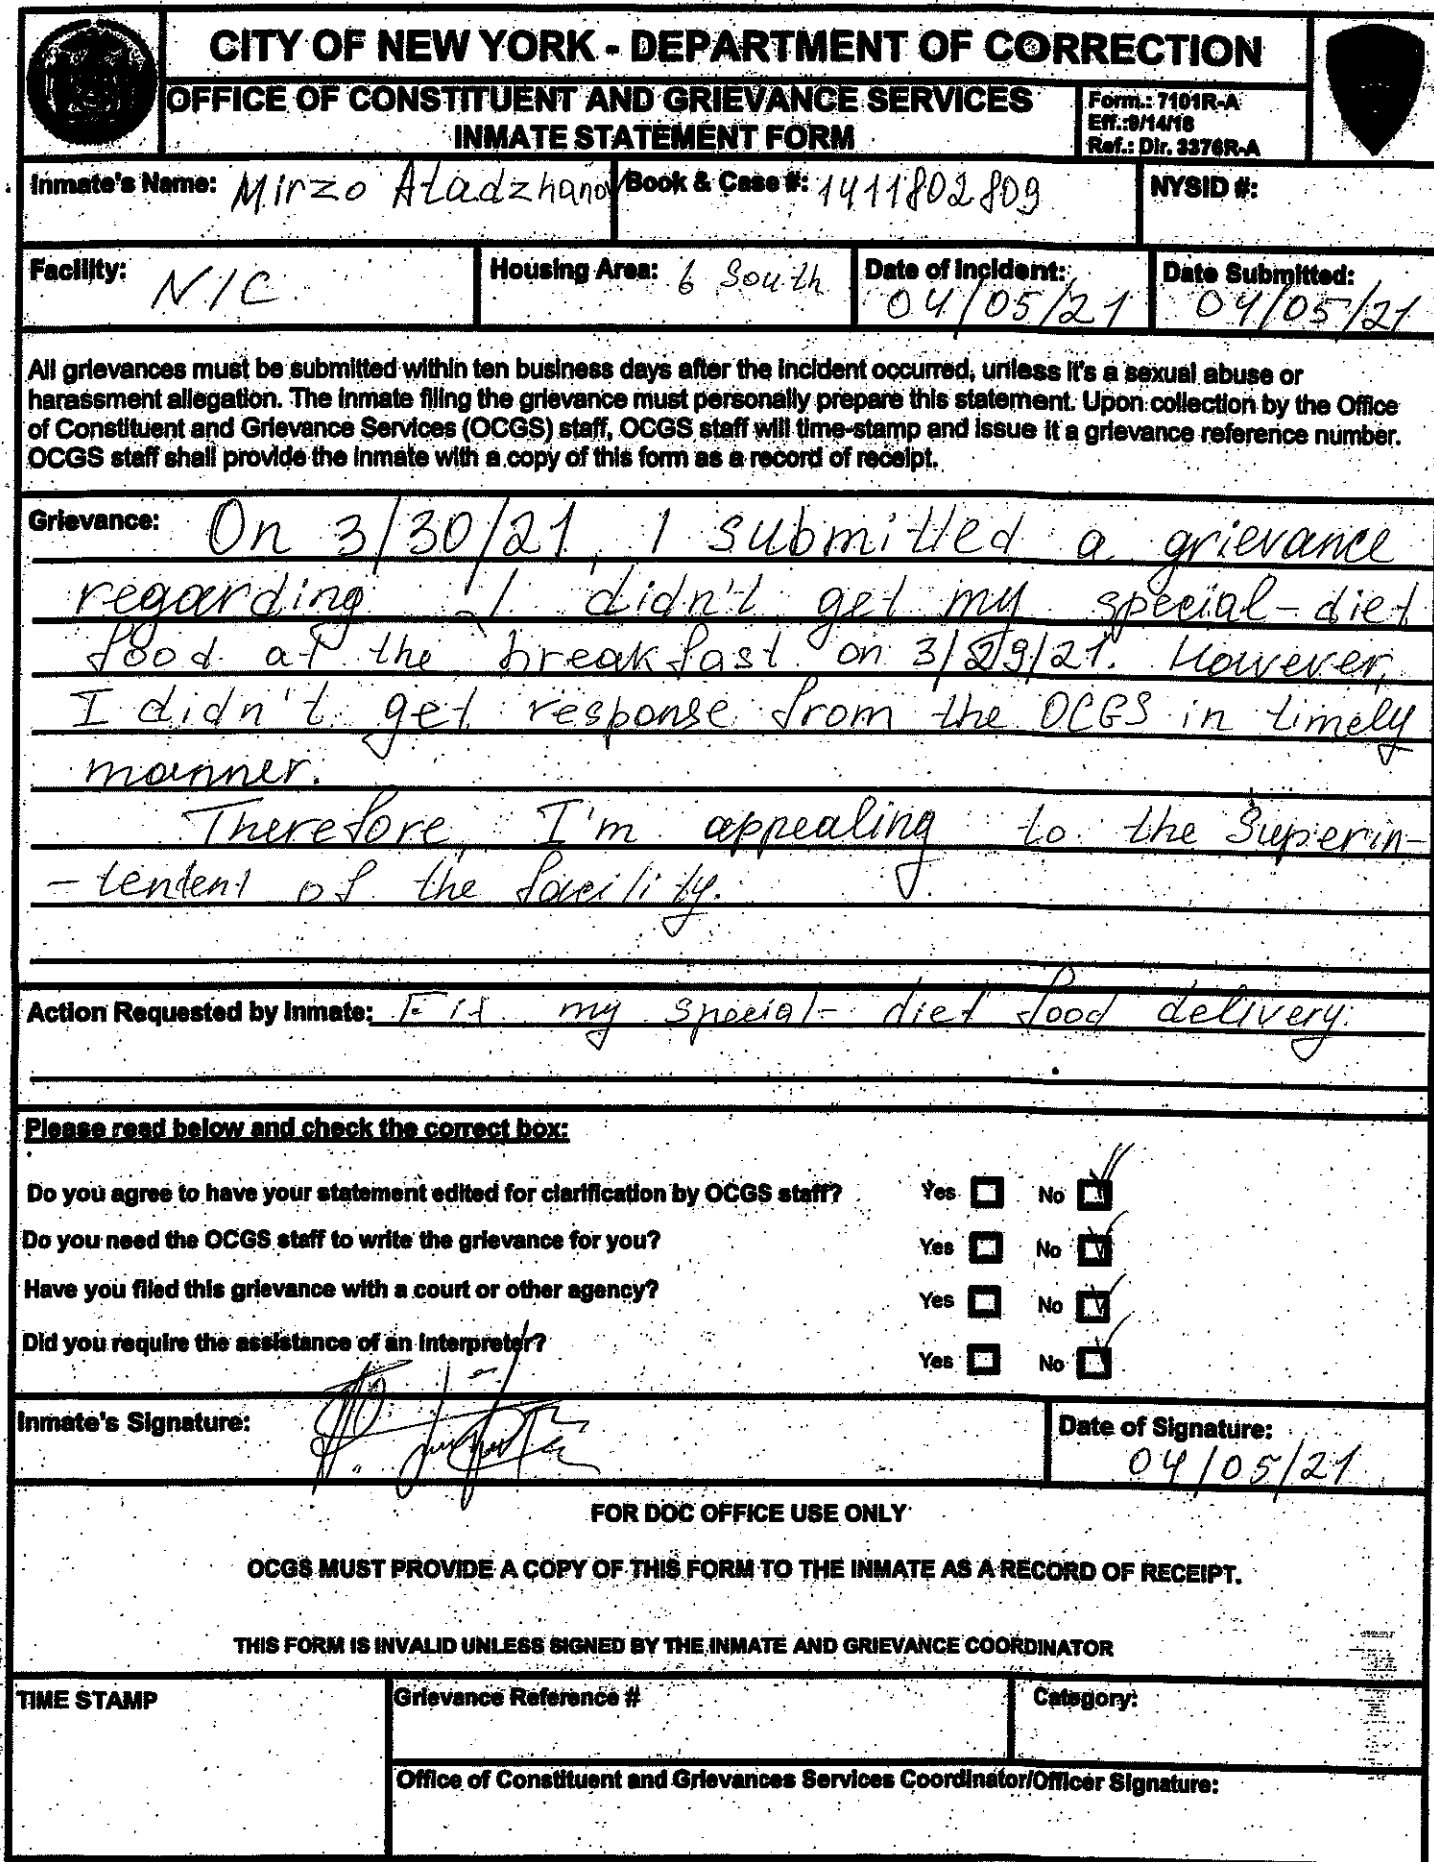 CITY OF NEW YORK - DEPARTMENT OF CORRECTION
OFFICE OF CONSTITUENT AND GRIEVANCE SERVICES
INMATE STATEMENT FORM
Form.: 7101R-A
Eff.:9/14/18
Ref.: Dir. 3376R-A
Inmate's Name: Mirzo Atadzhanov
Book & Case #: 1411802809
NYSID #:
Facility: NIC
Housing Area: 6 South
Date of Incident: 04/05/21
Date Submitted: 04/05/21
All grievances must be submitted within ten business days after the incident occurred, unless it's a sexual abuse or
harassment allegation. The inmate filing the grievance must personally prepare this statement. Upon collection by the Office
of Constituent and Grievance Services (OCGS) staff, OCGS staff will time-stamp and issue it a grievance reference number.
OCGS staff shall provide the inmate with a copy of this form as a record of receipt.
Grievance: On 3/30/21, I submitted a grievance
regarding I didn't get my special-diet
food at the breakfast on 3/29/21. However,
I didn't get response from the OCGS in timely
manner.
Therefore, I'm appealing to the Superin-
-tendent of the facility.
Action Requested by Inmate: Fix my special-diet food delivery.
Please read below and check the correct box:
Do you agree to have your statement edited for clarification by OCGS staff? Yes No
Do you need the OCGS staff to write the grievance for you? Yes No
Have you filed this grievance with a court or other agency? Yes No
Did you require the assistance of an interpreter? Yes No
Inmate's Signature:
Date of Signature: 04/05/21
FOR DOC OFFICE USE ONLY
OCGS MUST PROVIDE A COPY OF THIS FORM TO THE INMATE AS A RECORD OF RECEIPT.
THIS FORM IS INVALID UNLESS SIGNED BY THE INMATE AND GRIEVANCE COORDINATOR
TIME STAMP
Grievance Reference #
Category:
Office of Constituent and Grievances Services Coordinator/Officer Signature: